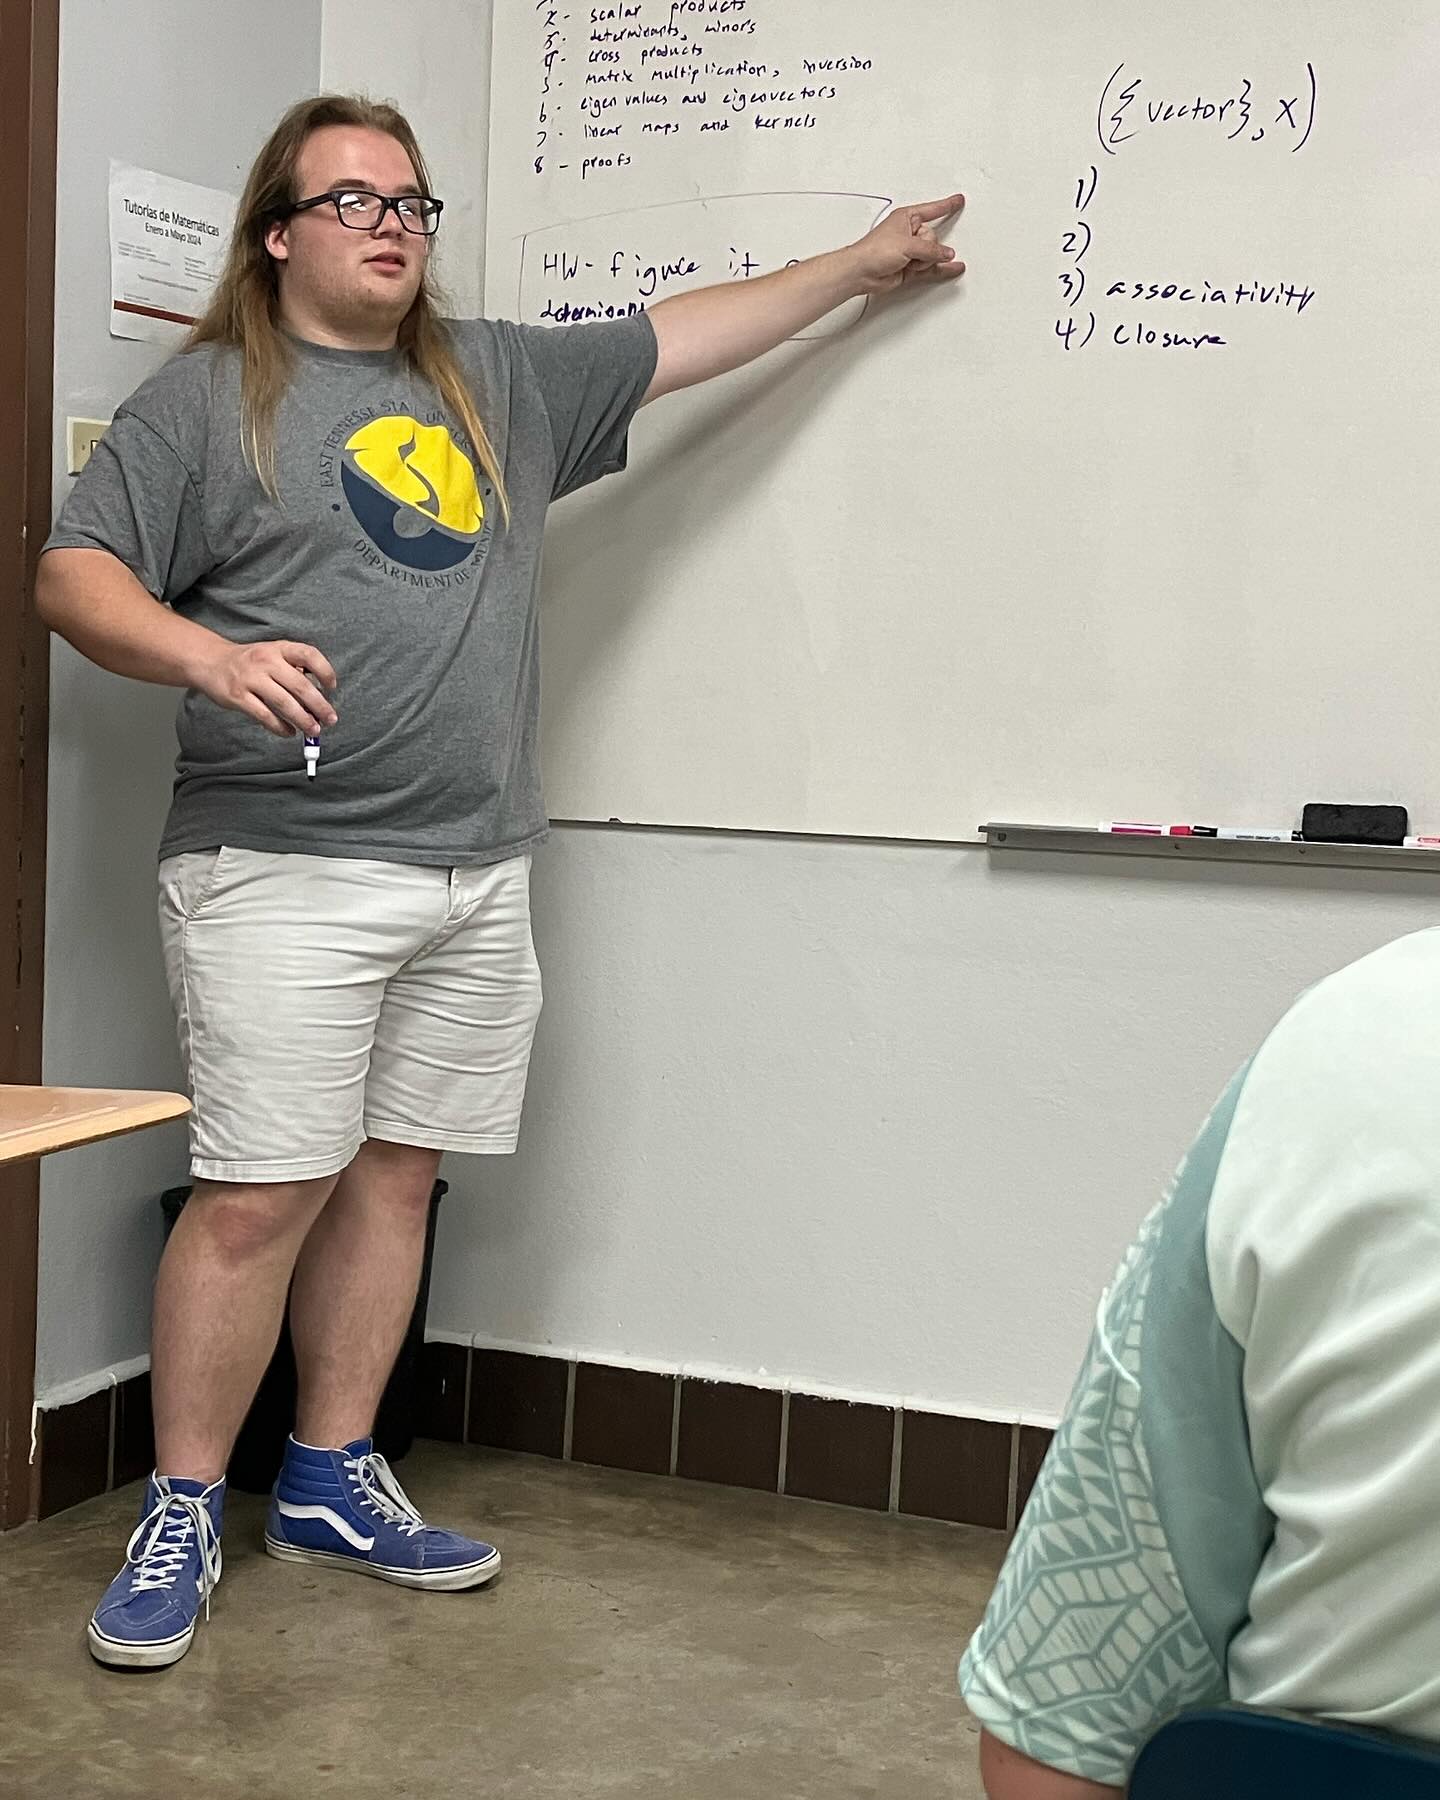 2 - scalar products
3 - determinants, minors
4 - cross products
5 - matrix multiplication, inversion
6 - eigen values and eigenvectors
7 - linear maps and kernels
8 - proofs
HW - figure it
determinant
({vector}, x)
1)
2)
3) associativity
4) closure
Tutorías de Matemáticas
Enero a Mayo 2024
EAST TENNESSE STA UNIVER
DEPARTMENT OF MUSI